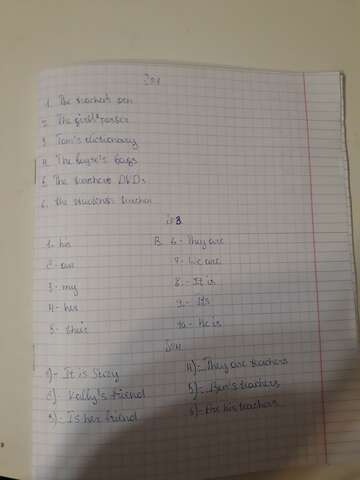 1. The teacher's pen
2. The girl's
3. Tom's dictionary
4. The boys's bags
5. The teachers DVDs
6. The students teacher
1- his
2- our
3- my
4- her
5- she's
B. 6- They are
7- We are
8- It is
9- It's
10- He is
1)- It is Suzy
2)- Kally's friend
3)- Is her friend
4)- They are teachers
5)- Ben's teachers
6)- Are his teachers